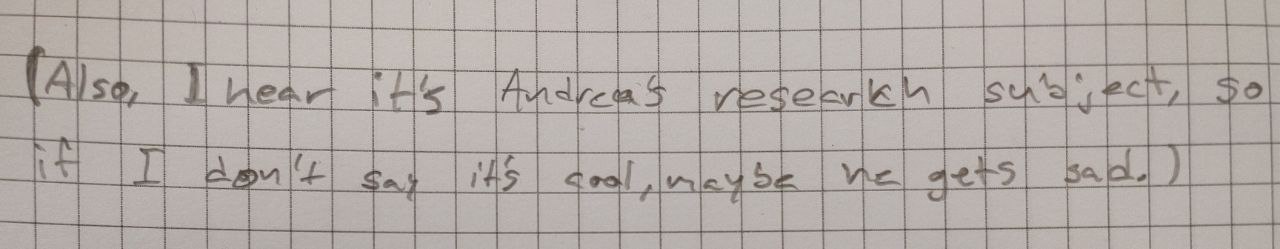 (Also, I hear it's Andrea's researkh subject, so
if I don't say it's cool, maybe he gets sad.)